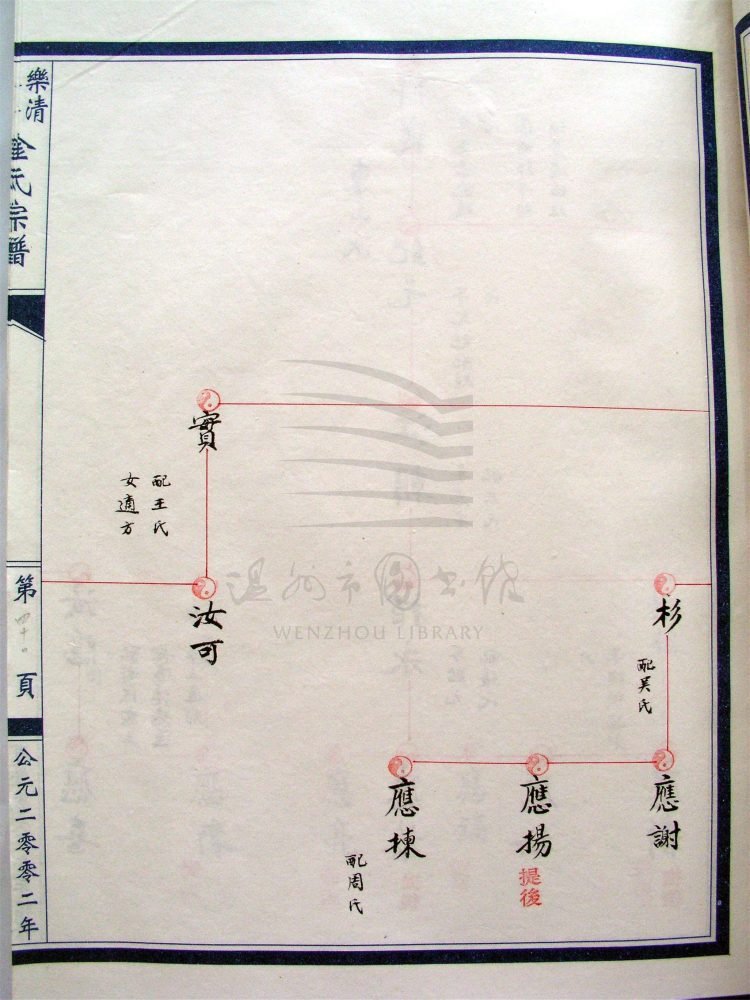 樂清
金氏宗譜
第四十頁
公元二零零二年
杉
配吴氏
應謝
應揚
提後
應揀
配周氏
實
配王氏
女適方
汝可
温州市图书馆
WENZHOU LIBRARY